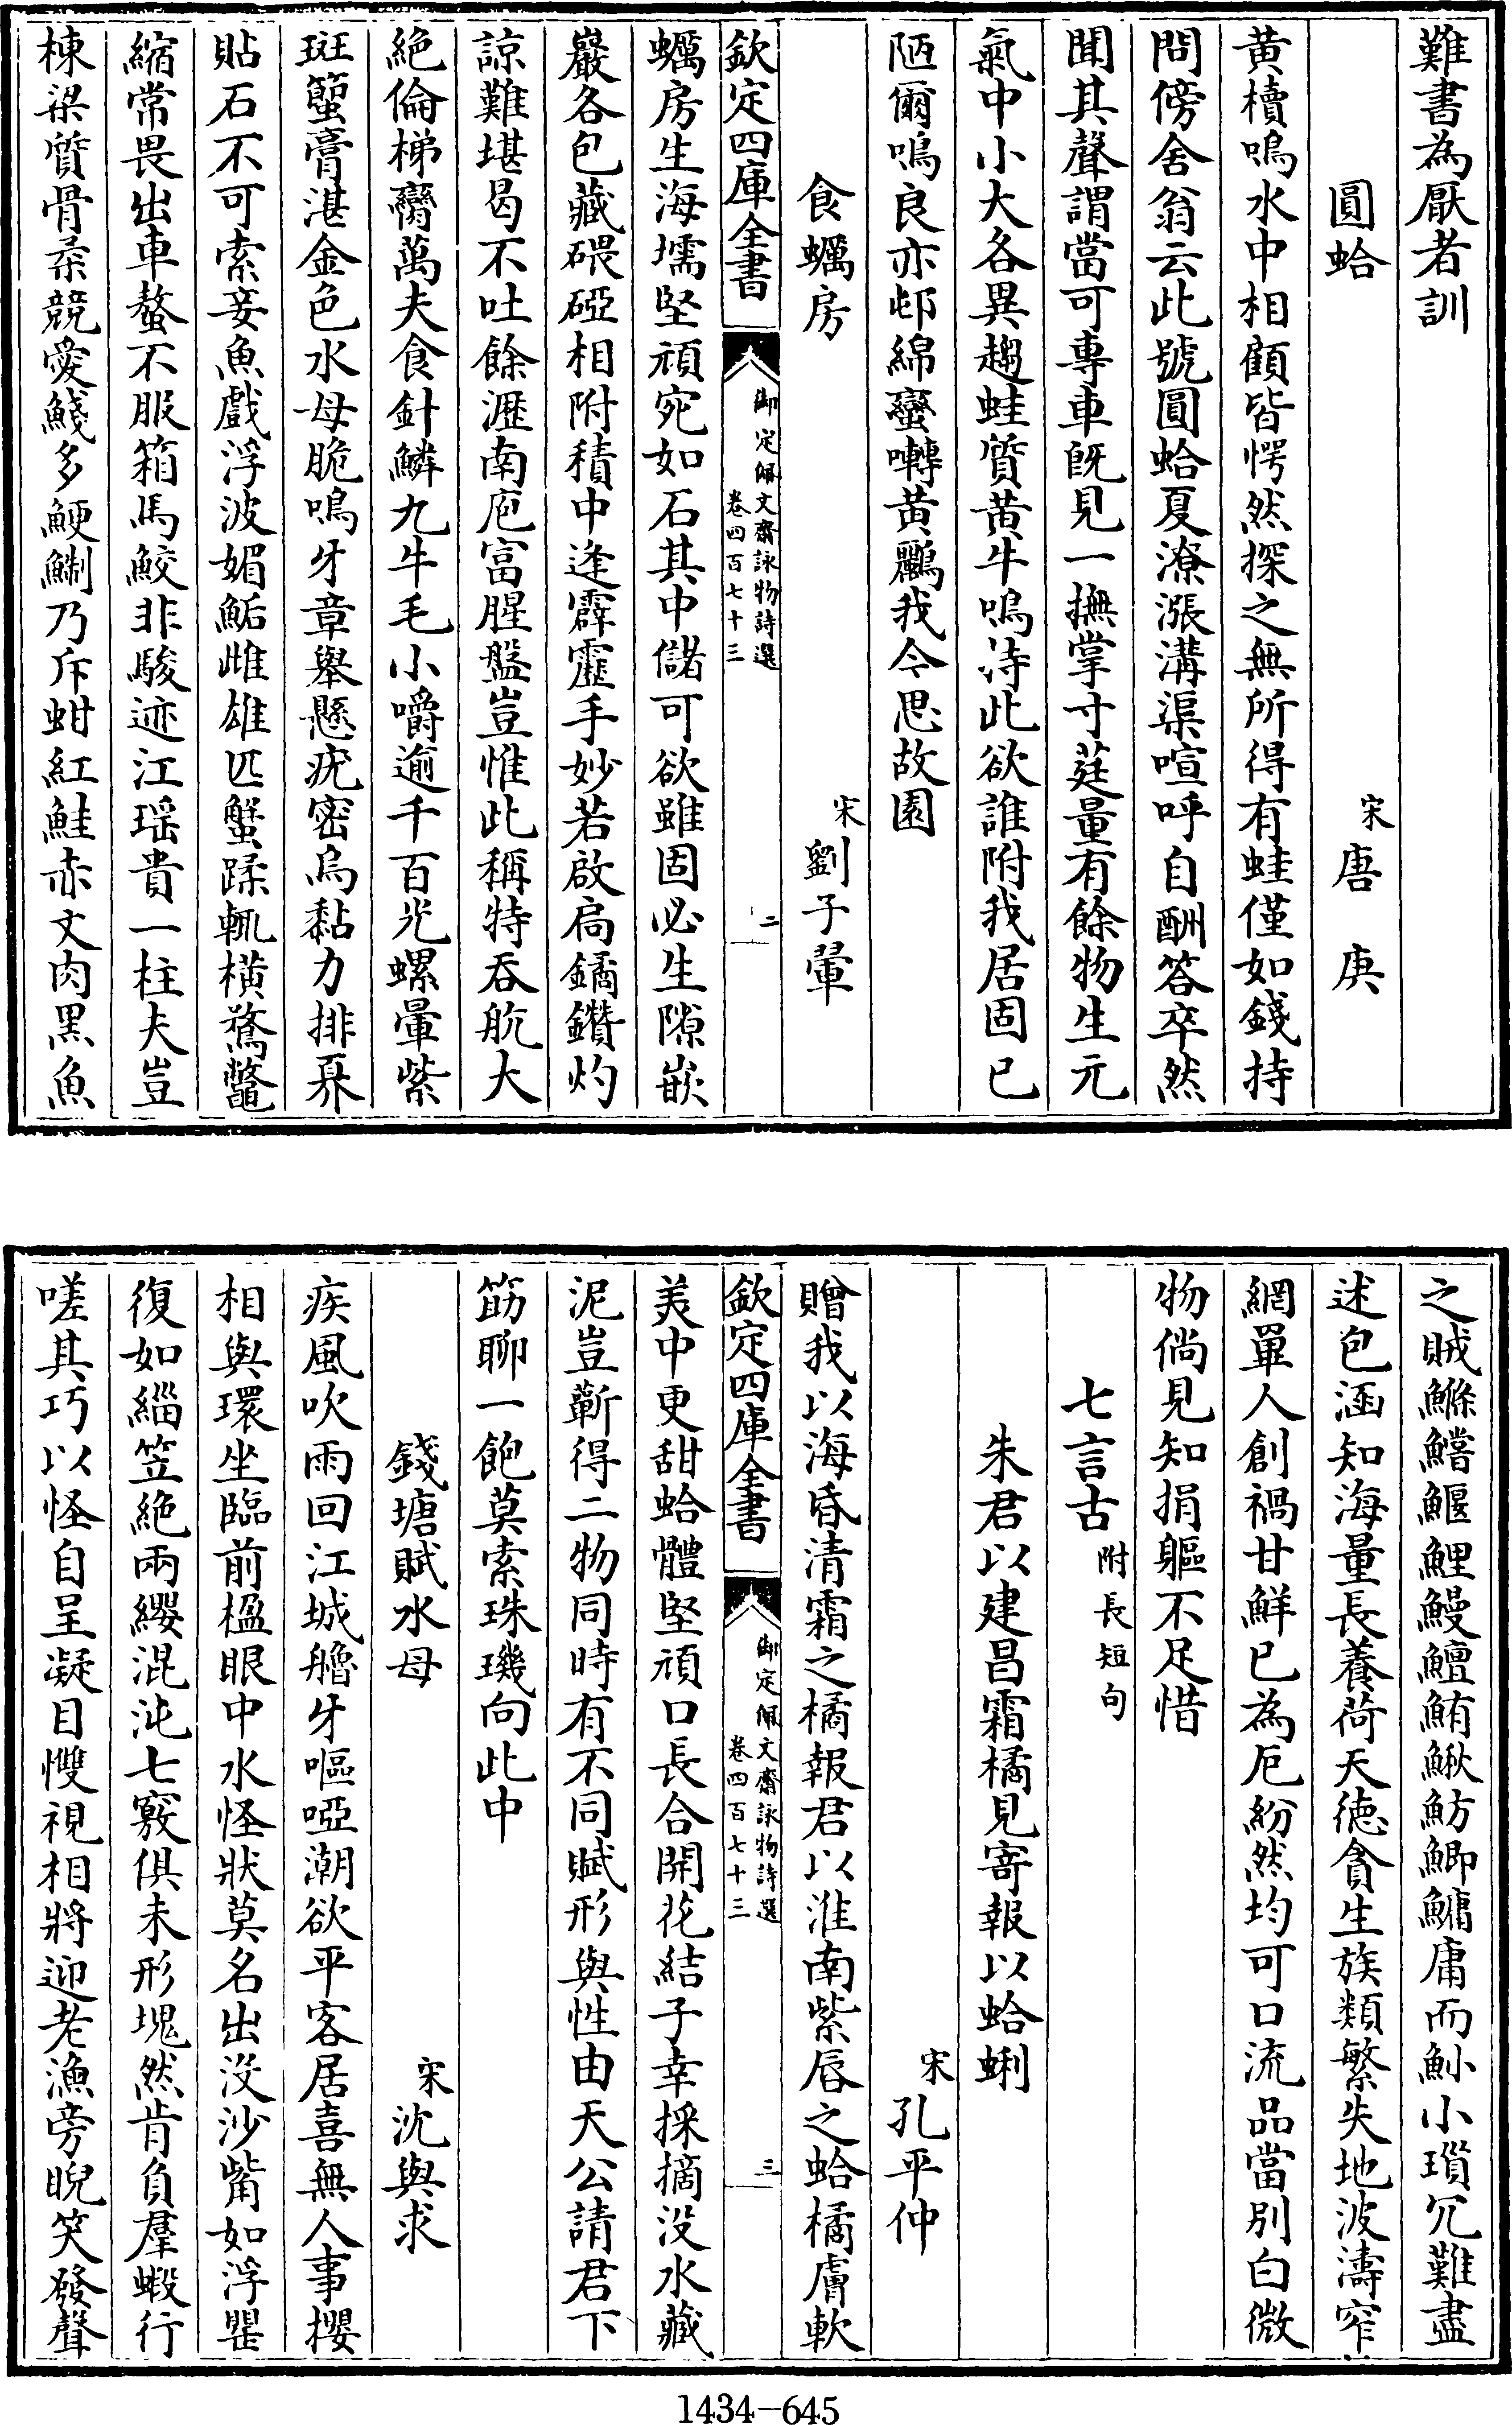 難書為厭者訓
圓蛤
宋唐庚
黄櫝鳴水中相顧皆愕然探之無所得有蛙僅如錢持
問傍舍翁云此號圓蛤夏潦漲溝渠喧呼自酬答卒然
聞其聲謂當可專車既見一撫掌寸莛量有餘物生元
氣中小大各異趨蛙質黄牛鳴恃此欲誰附我居固已
陋爾鳴良亦邨綿蠻囀黄鸝我今思故園
食蠣房
宋劉子翬
欽定四庫全書
御定佩文齋詠物詩選
卷四百七十三
二
蠣房生海壖堅頑宛如石其中儲可欲雖固必生隙嵌
巖各包藏碨磈相附積中逢霹靂手妙若啟扃鐍鑽灼
諒難堪曷不吐餘瀝南庖富腥盤豈惟此稱特吞航大
絶倫梯臠萬夫食針鱗九牛毛小嚼逾千百光螺暈紫
斑蟹膏湛金色水母脆鳴牙章舉懸疣密烏黏力排奡
貼石不可索妾魚戲浮波媚鮜雌雄匹蟹蹂輒横驁鼈
縮常畏出車螯不服箱馬鮫非駿迹江瑶貴一柱夫豈
棟梁質骨柔競愛鯎多鯁鯏乃斥蚶紅鮭赤文肉黑魚
之賊鰷鱨鰋鯉鰻鱣鮪鰍魴鯽鱅庸而魦小瑣冗難盡
述包涵知海量長養荷天德貪生族類繁失地波濤窄
網罼人創禍甘鮮已為厄紛然均可口流品當别白微
物倘見知捐軀不足惜
七言古附長短句
朱君以建昌霜橘見寄報以蛤蜊
宋孔平仲
贈我以海昏清霜之橘報君以淮南紫唇之蛤橘膚軟
欽定四庫全書
御定佩文齋詠物詩選
卷四百七十三
三
美中更甜蛤體堅頑口長合開花結子幸採摘没水藏
泥豈蘄得二物同時有不同賦形與性由天公請君下
筯聊一飽莫索珠璣向此中
錢塘賦水母
宋沈與求
疾風吹雨回江城艪牙嘔啞潮欲平客居喜無人事攖
相與環坐臨前楹眼中水怪狀莫名出没沙觜如浮罌
復如緇笠絶兩纓混沌七竅俱未形塊然肯負羣蝦行
嗟其巧以怪自呈凝目慴視相將迎老漁旁睨笑發聲
1434-645